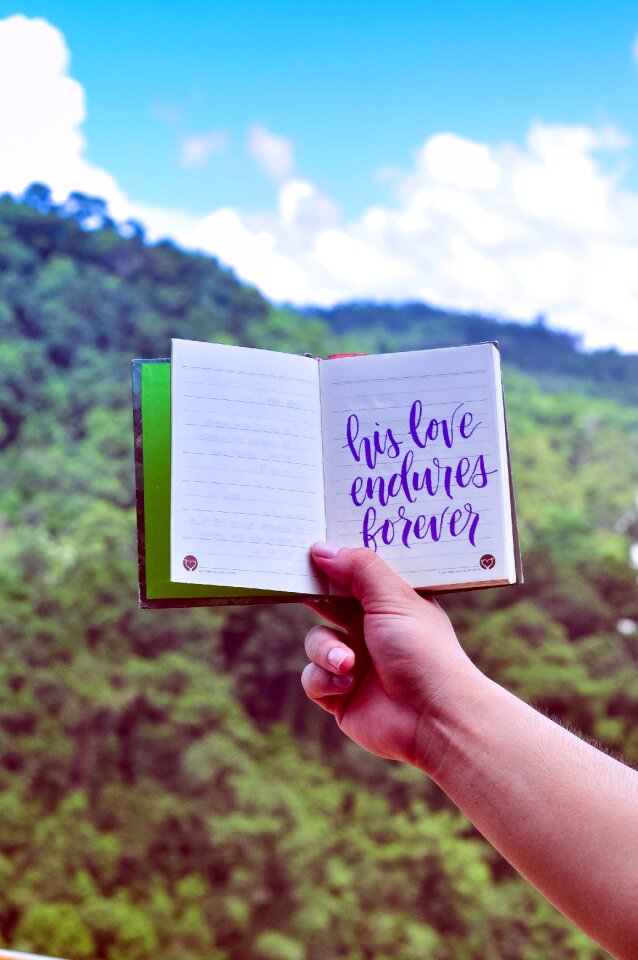 his love
endures
forever